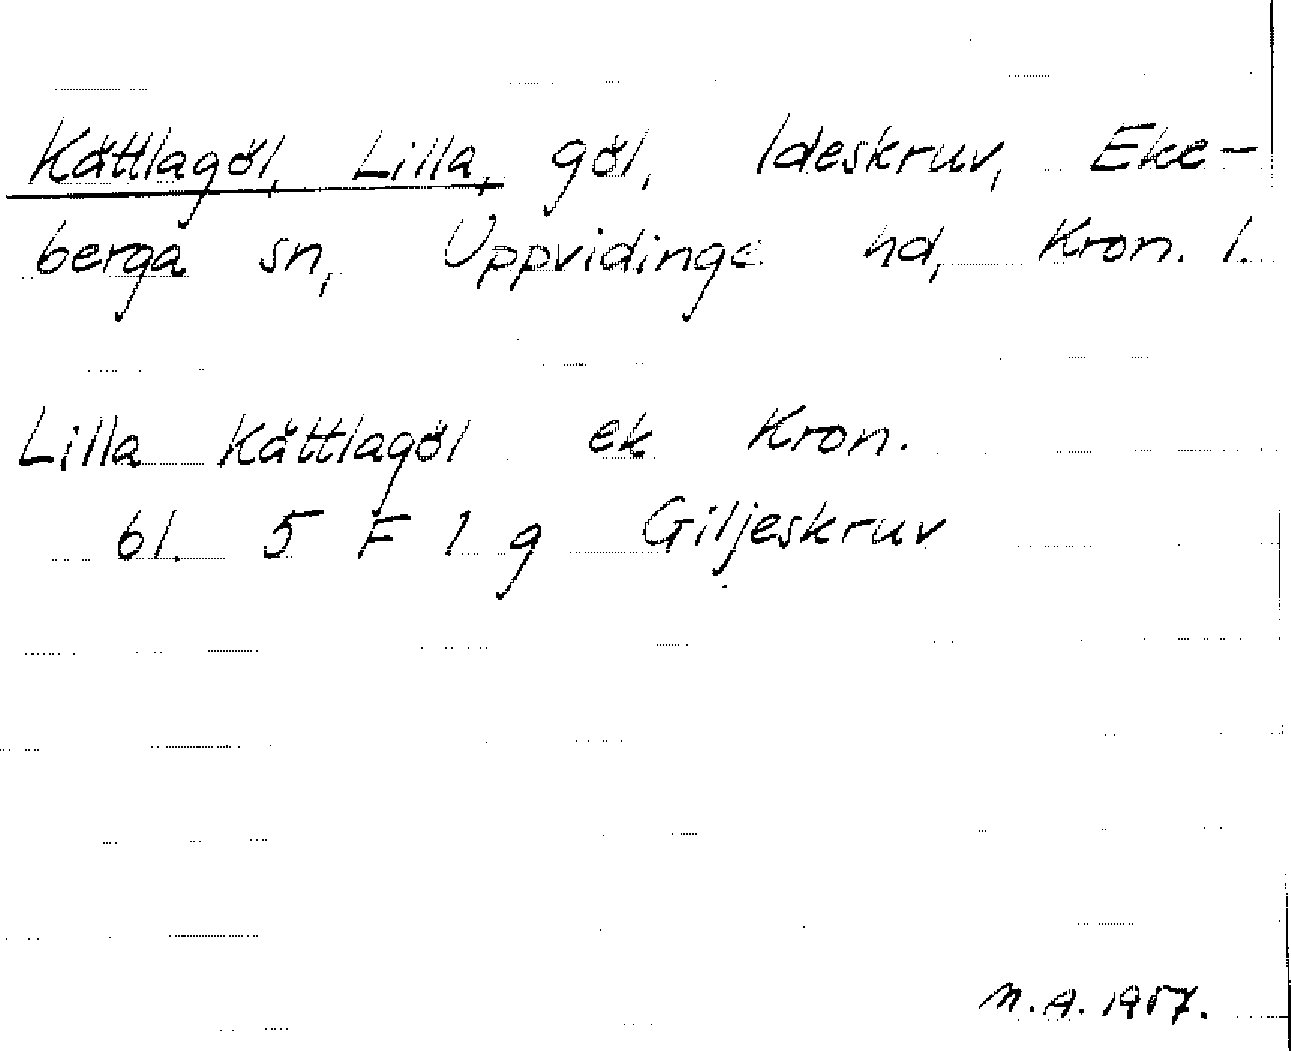 Kåttlagöl, Lilla, göl, Ideskruv, Eke-
berga sn, Uppvidinge hd, Kron. l.
Lilla Kåttlagöl ek Kron.
bl. 5 F 1 g Giljeskruv
N.A. 1957.